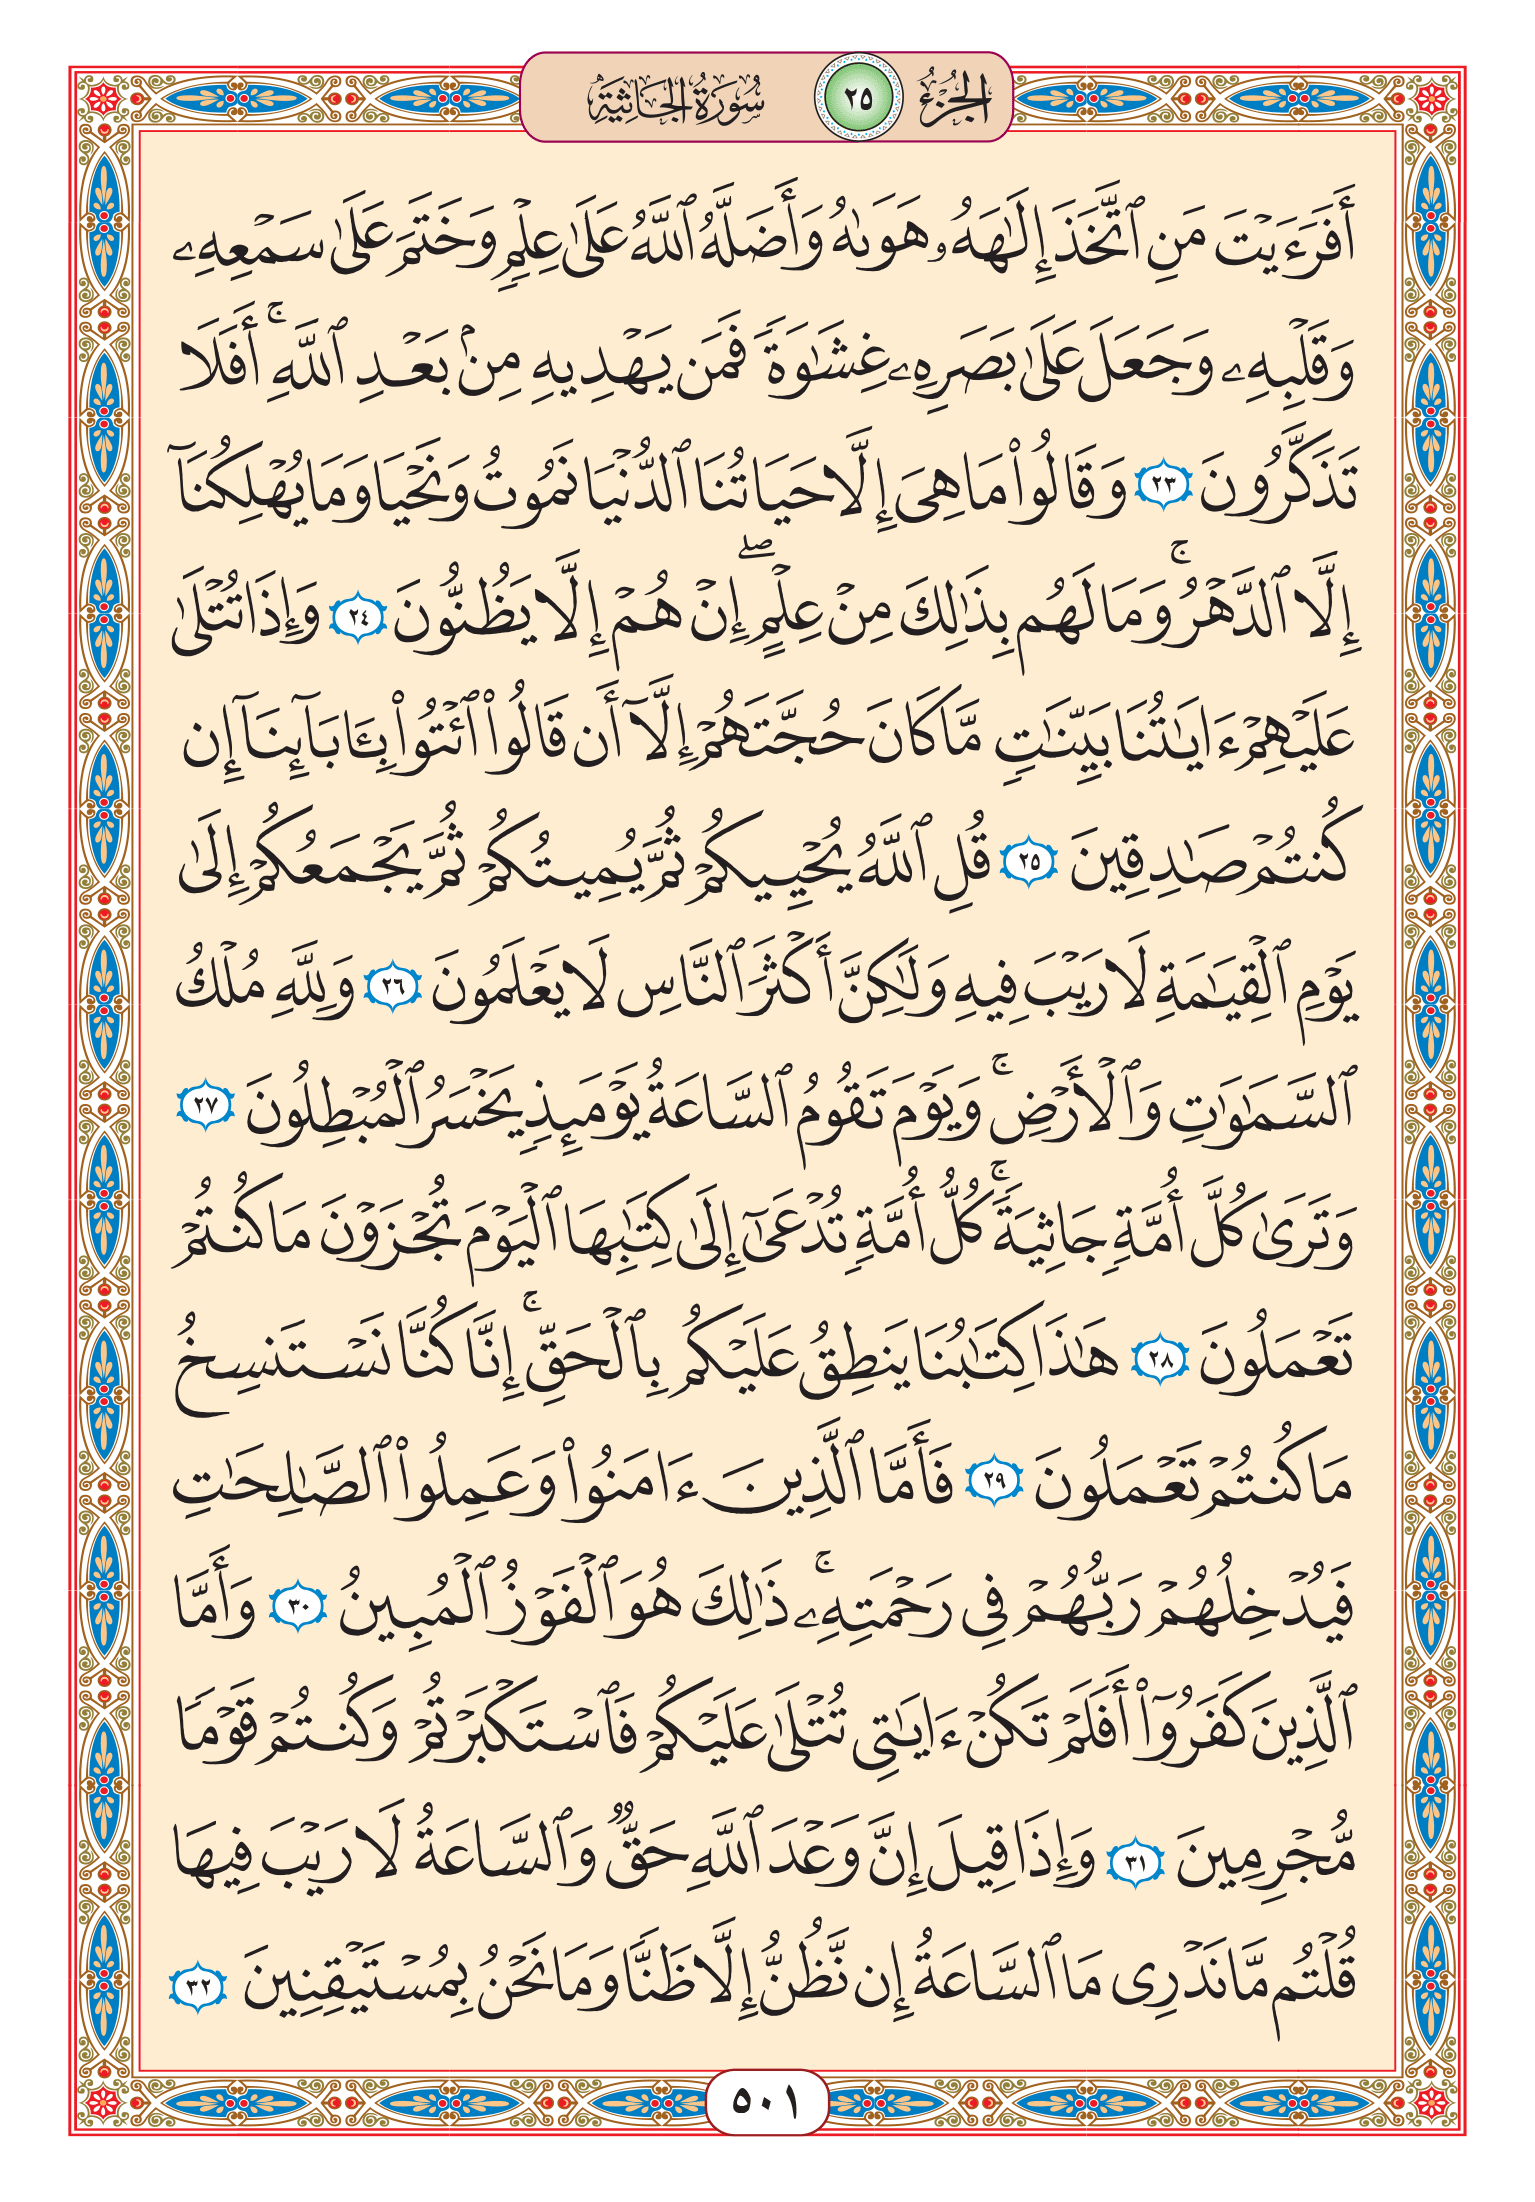 الجزء ٢٥ سورة الجاثية
أَفَرَءَيْتَ مَنِ ٱتَّخَذَ إِلَٰهَهُۥ هَوَىٰهُ وَأَضَلَّهُ ٱللَّهُ عَلَىٰ عِلْمٍ وَخَتَمَ عَلَىٰ سَمْعِهِۦ
وَقَلْبِهِۦ وَجَعَلَ عَلَىٰ بَصَرِهِۦ غِشَٰوَةً فَمَن يَهْدِيهِ مِنۢ بَعْدِ ٱللَّهِ ۚ أَفَلَا
تَذَكَّرُونَ ٢٣ وَقَالُوا۟ مَا هِىَ إِلَّا حَيَاتُنَا ٱلدُّنْيَا نَمُوتُ وَنَحْيَا وَمَا يُهْلِكُنَآ
إِلَّا ٱلدَّهْرُ ۚ وَمَا لَهُم بِذَٰلِكَ مِنْ عِلْمٍ ۖ إِنْ هُمْ إِلَّا يَظُنُّونَ ٢٤ وَإِذَا تُتْلَىٰ
عَلَيْهِمْ ءَايَٰتُنَا بَيِّنَٰتٍ مَّا كَانَ حُجَّتَهُمْ إِلَّآ أَن قَالُوا۟ ٱئْتُوا۟ بِـَٔابَآئِنَآ إِن
كُنتُمْ صَٰدِقِينَ ٢٥ قُلِ ٱللَّهُ يُحْيِيكُمْ ثُمَّ يُمِيتُكُمْ ثُمَّ يَجْمَعُكُمْ إِلَىٰ
يَوْمِ ٱلْقِيَٰمَةِ لَا رَيْبَ فِيهِ وَلَٰكِنَّ أَكْثَرَ ٱلنَّاسِ لَا يَعْلَمُونَ ٢٦ وَلِلَّهِ مُلْكُ
ٱلسَّمَٰوَٰتِ وَٱلْأَرْضِ ۚ وَيَوْمَ تَقُومُ ٱلسَّاعَةُ يَوْمَئِذٍ يَخْسَرُ ٱلْمُبْطِلُونَ ٢٧
وَتَرَىٰ كُلَّ أُمَّةٍ جَاثِيَةً ۚ كُلُّ أُمَّةٍ تُدْعَىٰٓ إِلَىٰ كِتَٰبِهَا ٱلْيَوْمَ تُجْزَوْنَ مَا كُنتُمْ
تَعْمَلُونَ ٢٨ هَٰذَا كِتَٰبُنَا يَنطِقُ عَلَيْكُم بِٱلْحَقِّ ۚ إِنَّا كُنَّا نَسْتَنسِخُ
مَا كُنتُمْ تَعْمَلُونَ ٢٩ فَأَمَّا ٱلَّذِينَ ءَامَنُوا۟ وَعَمِلُوا۟ ٱلصَّٰلِحَٰتِ
فَيُدْخِلُهُمْ رَبُّهُمْ فِى رَحْمَتِهِۦ ۚ ذَٰلِكَ هُوَ ٱلْفَوْزُ ٱلْمُبِينُ ٣٠ وَأَمَّا
ٱلَّذِينَ كَفَرُوٓا۟ أَفَلَمْ تَكُنْ ءَايَٰتِى تُتْلَىٰ عَلَيْكُمْ فَٱسْتَكْبَرْتُمْ وَكُنتُمْ قَوْمًا
مُّجْرِمِينَ ٣١ وَإِذَا قِيلَ إِنَّ وَعْدَ ٱللَّهِ حَقٌّ وَٱلسَّاعَةُ لَا رَيْبَ فِيهَا
قُلْتُم مَّا نَدْرِى مَا ٱلسَّاعَةُ إِن نَّظُنُّ إِلَّا ظَنًّا وَمَا نَحْنُ بِمُسْتَيْقِنِينَ ٣٢
٥٠١